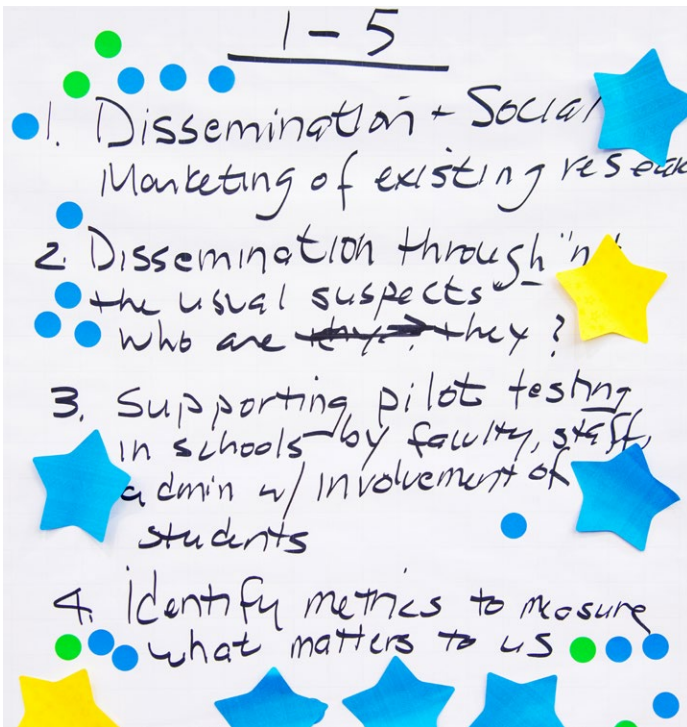 1 - 5
1. Dissemination + Social
Marketing of existing
2. Dissemination through
the usual suspects"
who are they?
3. Supporting pilot testing
in schools - by faculty, staff,
admin w/ involvement of
students
4. Identify metrics to mesure
what matters to us